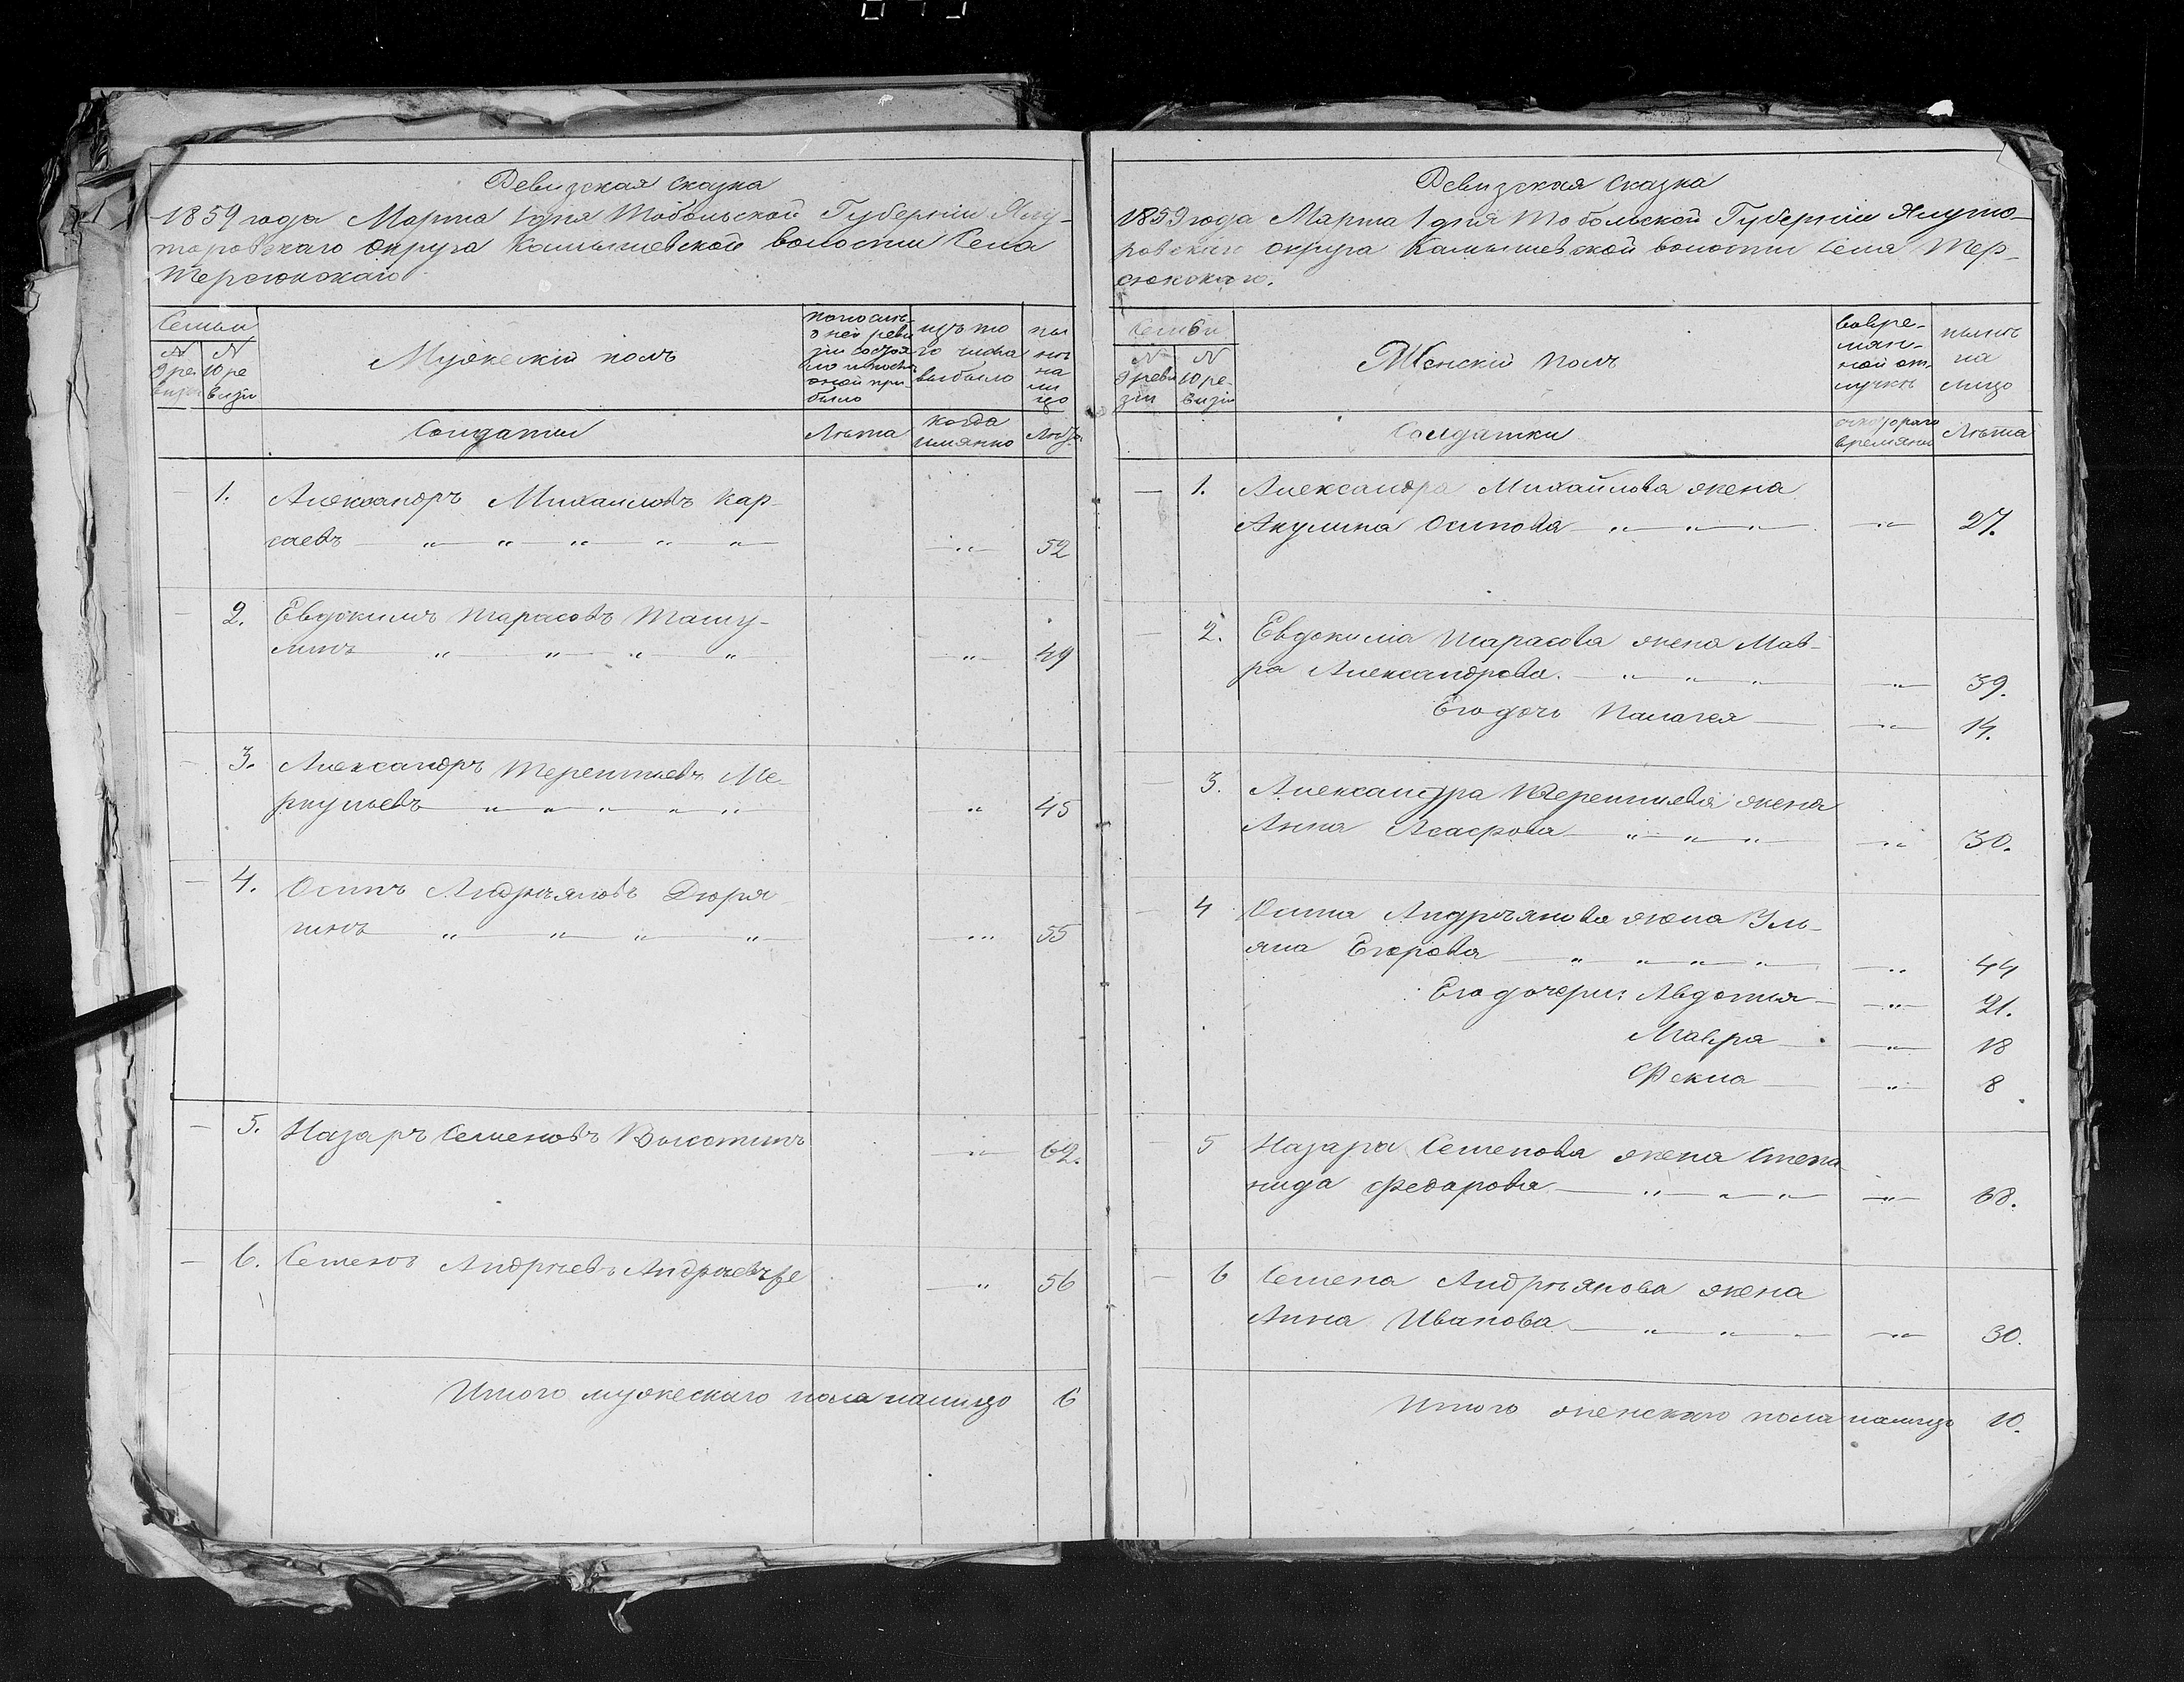 Ревизская сказка
1859 года Марта 1 дня Тобольской Губерніи Ялу-
торовскаго округа Камышевской волости Села
Терсюкскаго
Семьи
№ 9 ре визіи
№ 10 ре визіи
Мужескій полъ
по послѣ-
дней реви
зіи состоя
ло и послѣ
оной при
было
изъ то
го числа
выбыло
ны
нѣ
на
ли
цо
Солдаты
Лѣта
когда
имянно
Лѣта
1. Александръ Михаиловъ Кар-
саевъ 52
2. Евдокимъ Тарасовъ Ташу-
линъ 49
3. Александръ Терентьевъ Ме-
ркульевъ 45
4. Осипъ Андрѣяновъ Дюря
гинъ 55
5. Назаръ Семеновъ Высотинъ 62.
6. Семенъ Андрѣевъ 56
Итого мужескаго пола налицо 6
Ревизская Сказка
1859 года Марта 1 дня Тобольской Губерніи Ялуто-
ровскаго округа Камышевской волости села Тер-
сюкскаго.
Семьи
№ 9 реви зіи
№ 10 ре- визіи
Женскій полъ
вовре-
мян-
ной от
лучкѣ
нынѣ
на
лицо
Солдатки
скотораго
времяни
Лѣта
1. Александра Михайлова жена
Акулина Осипова 27.
2. Евдокима Тарасова жена Мав-
ра Александрова. 39.
Его дочь Палагея 14.
3. Александра Терентьева жена
Анна 30.
4 Осипа Андрѣянова жена Уль-
яна Егорова 44
Его дочери: Авдотья 21.
Мавра 18
Фекла 8
5 Назара Семенова жена Степа
нида Федарова 68.
6 Семена Андрѣянова жена
Анна Иванова 30.
Итого женскаго пола налицо 10.